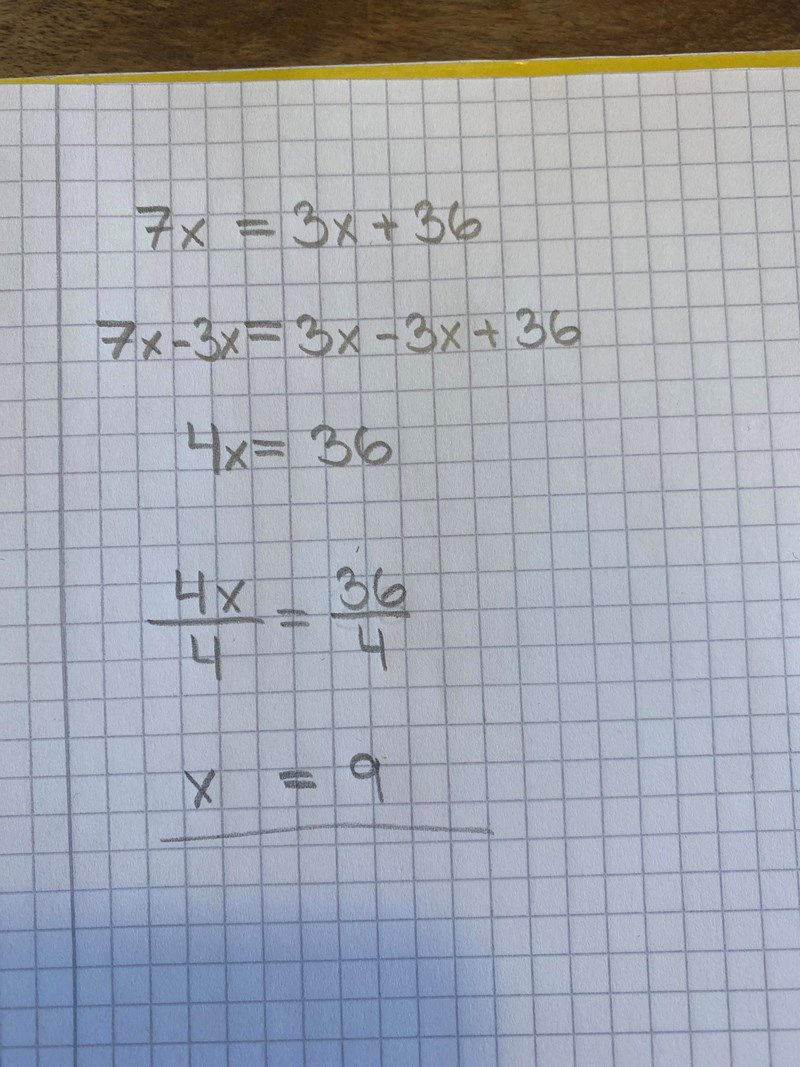 7x = 3x + 36
7x - 3x = 3x - 3x + 36
4x = 36
4x/4 = 36/4
x = 9